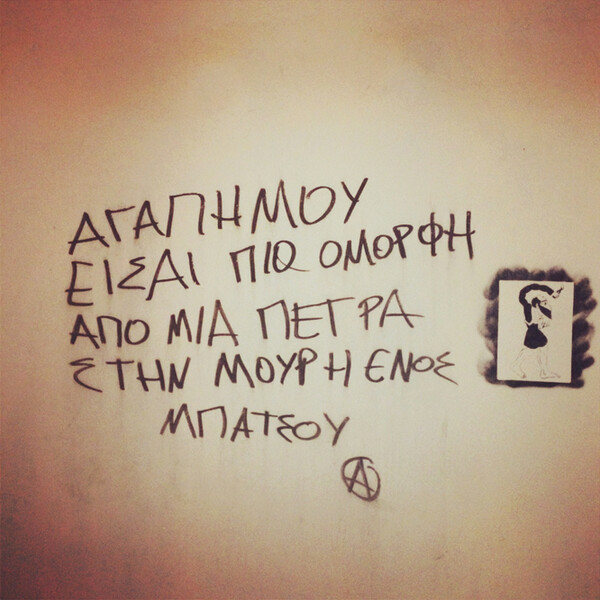 ΑΓΑΠΗ ΜΟΥ
ΕΙΣΑΙ ΠΙΟ ΟΜΟΡΦΗ
ΑΠΟ ΜΙΑ ΠΕΤΡΑ
ΣΤΗΝ ΜΟΥΡΗ ΕΝΟΣ
ΜΠΑΤΣΟΥ
Ⓐ